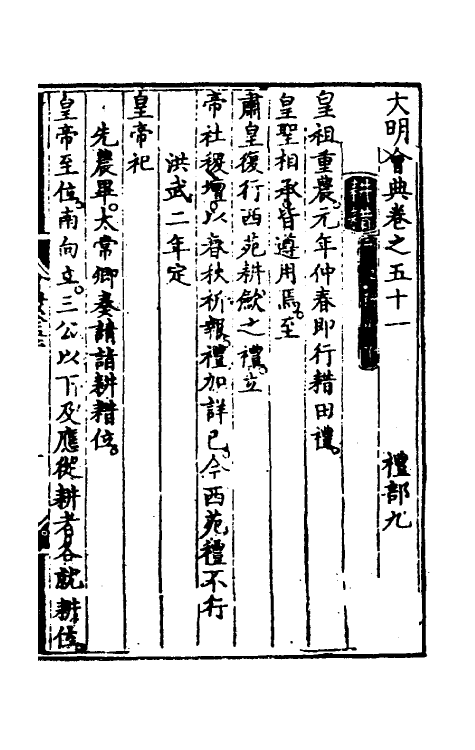 大明會典卷之五十一　禮部九
耕耤
皇祖重農。元年仲春即行耤田禮。
皇聖相承。皆遵用焉。至
肅皇復行西苑耕歛之禮。立
帝社稷壇。以春秋祈報。禮加詳已。今西苑禮不行
洪武二年定
皇帝祀
先農畢。太常卿奏請詣耕耤位。
皇帝至位。南向立。三公以下及應從耕者各就耕位。